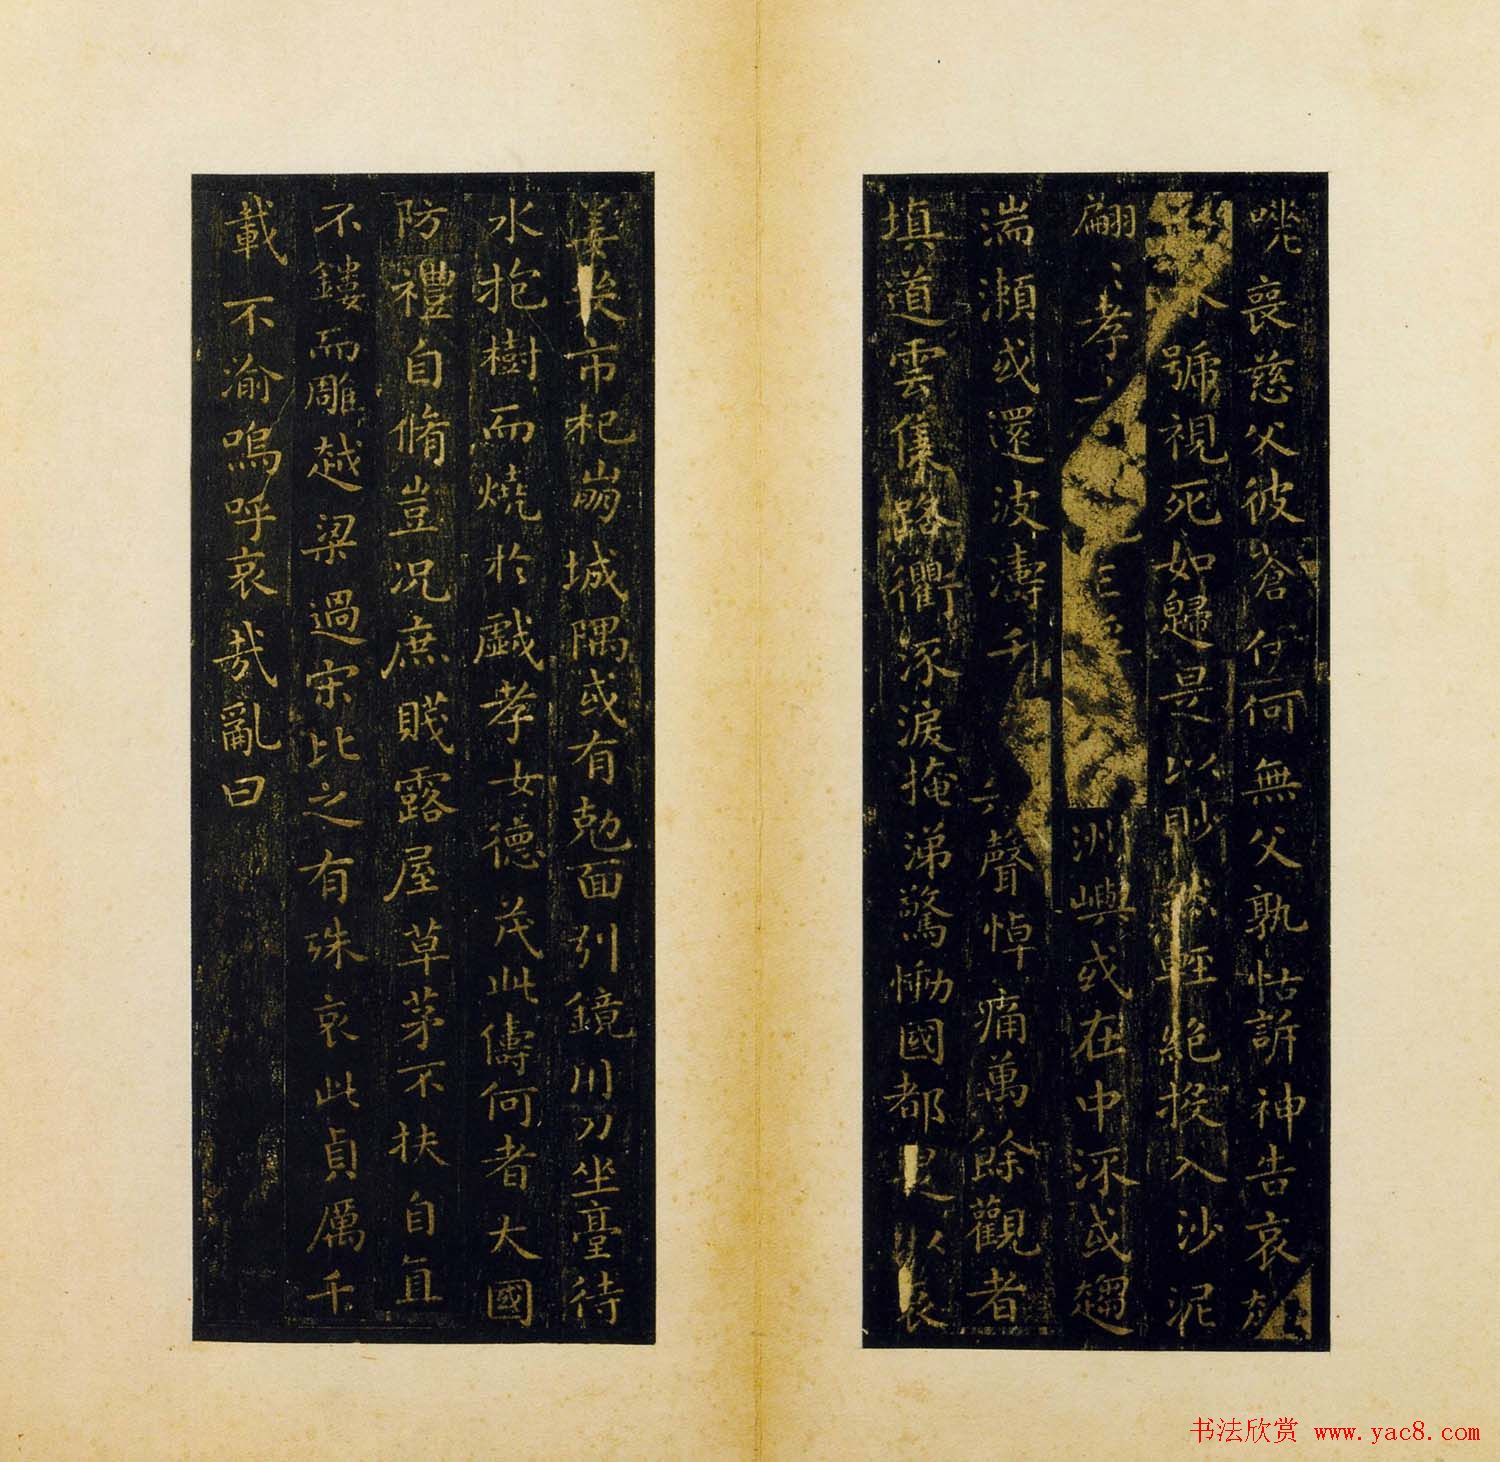 喪慈父彼蒼伊何無父孰怙訴神告哀
號視死如歸是以眇然輕絕投入沙泥
翩〻孝女 洲嶼或在中流或趨
湍瀨或還波濤千 聲悼痛萬餘觀者
填道雲集路衢流淚掩涕驚慟國都是以哀
姜哭市杞崩城隅或有剋面引鏡刵刀坐臺待
水抱樹而燒於戲孝女德茂此儔何者大國
防禮自脩豈况庶賤露屋草茅不扶自直
不鏤而雕越梁過宋比之有殊哀此貞厲千
載不渝嗚呼哀哉亂曰
书法欣赏 www.yac8.com